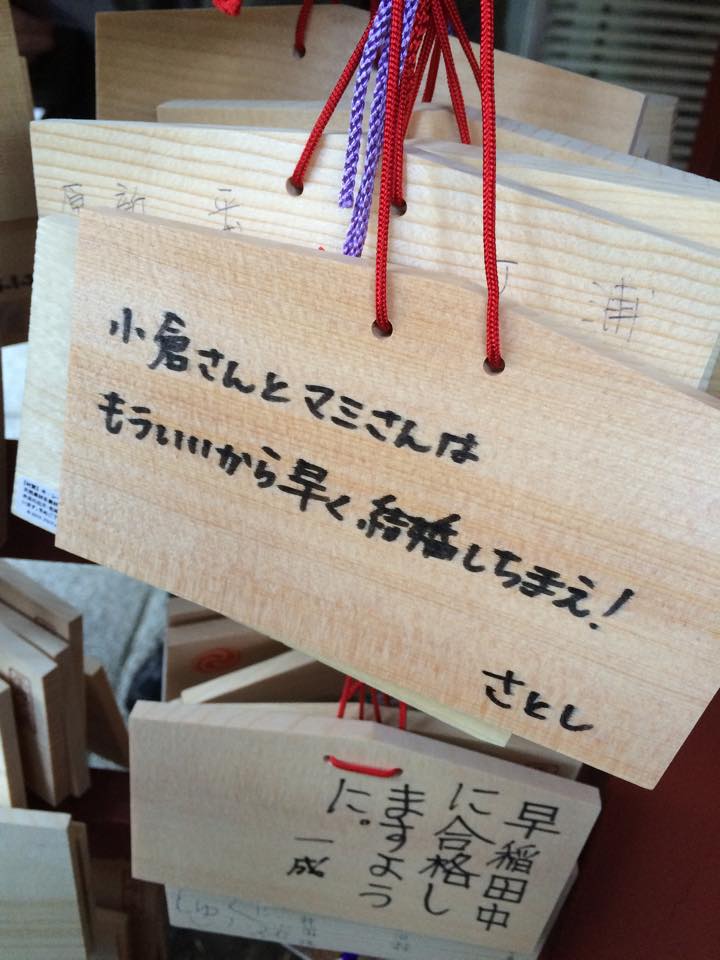 小倉さんとマミさんは
もういいから早く、結婚しちまえ!
さとし
早稲田中
に合格し
ますよう
に。
一成